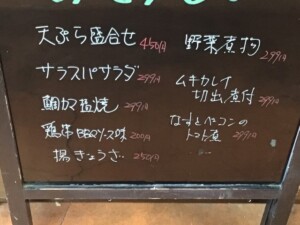 天ぷら盛合せ 450円
サラスパサラダ 299円
鯛カマ塩焼 299円
鶏串BBQソース味 200円
揚ぎょうざ 250円
野菜煮物 299円
ムキカレイ
切出し煮付 299円
なすとベーコンの
トマト煮 299円